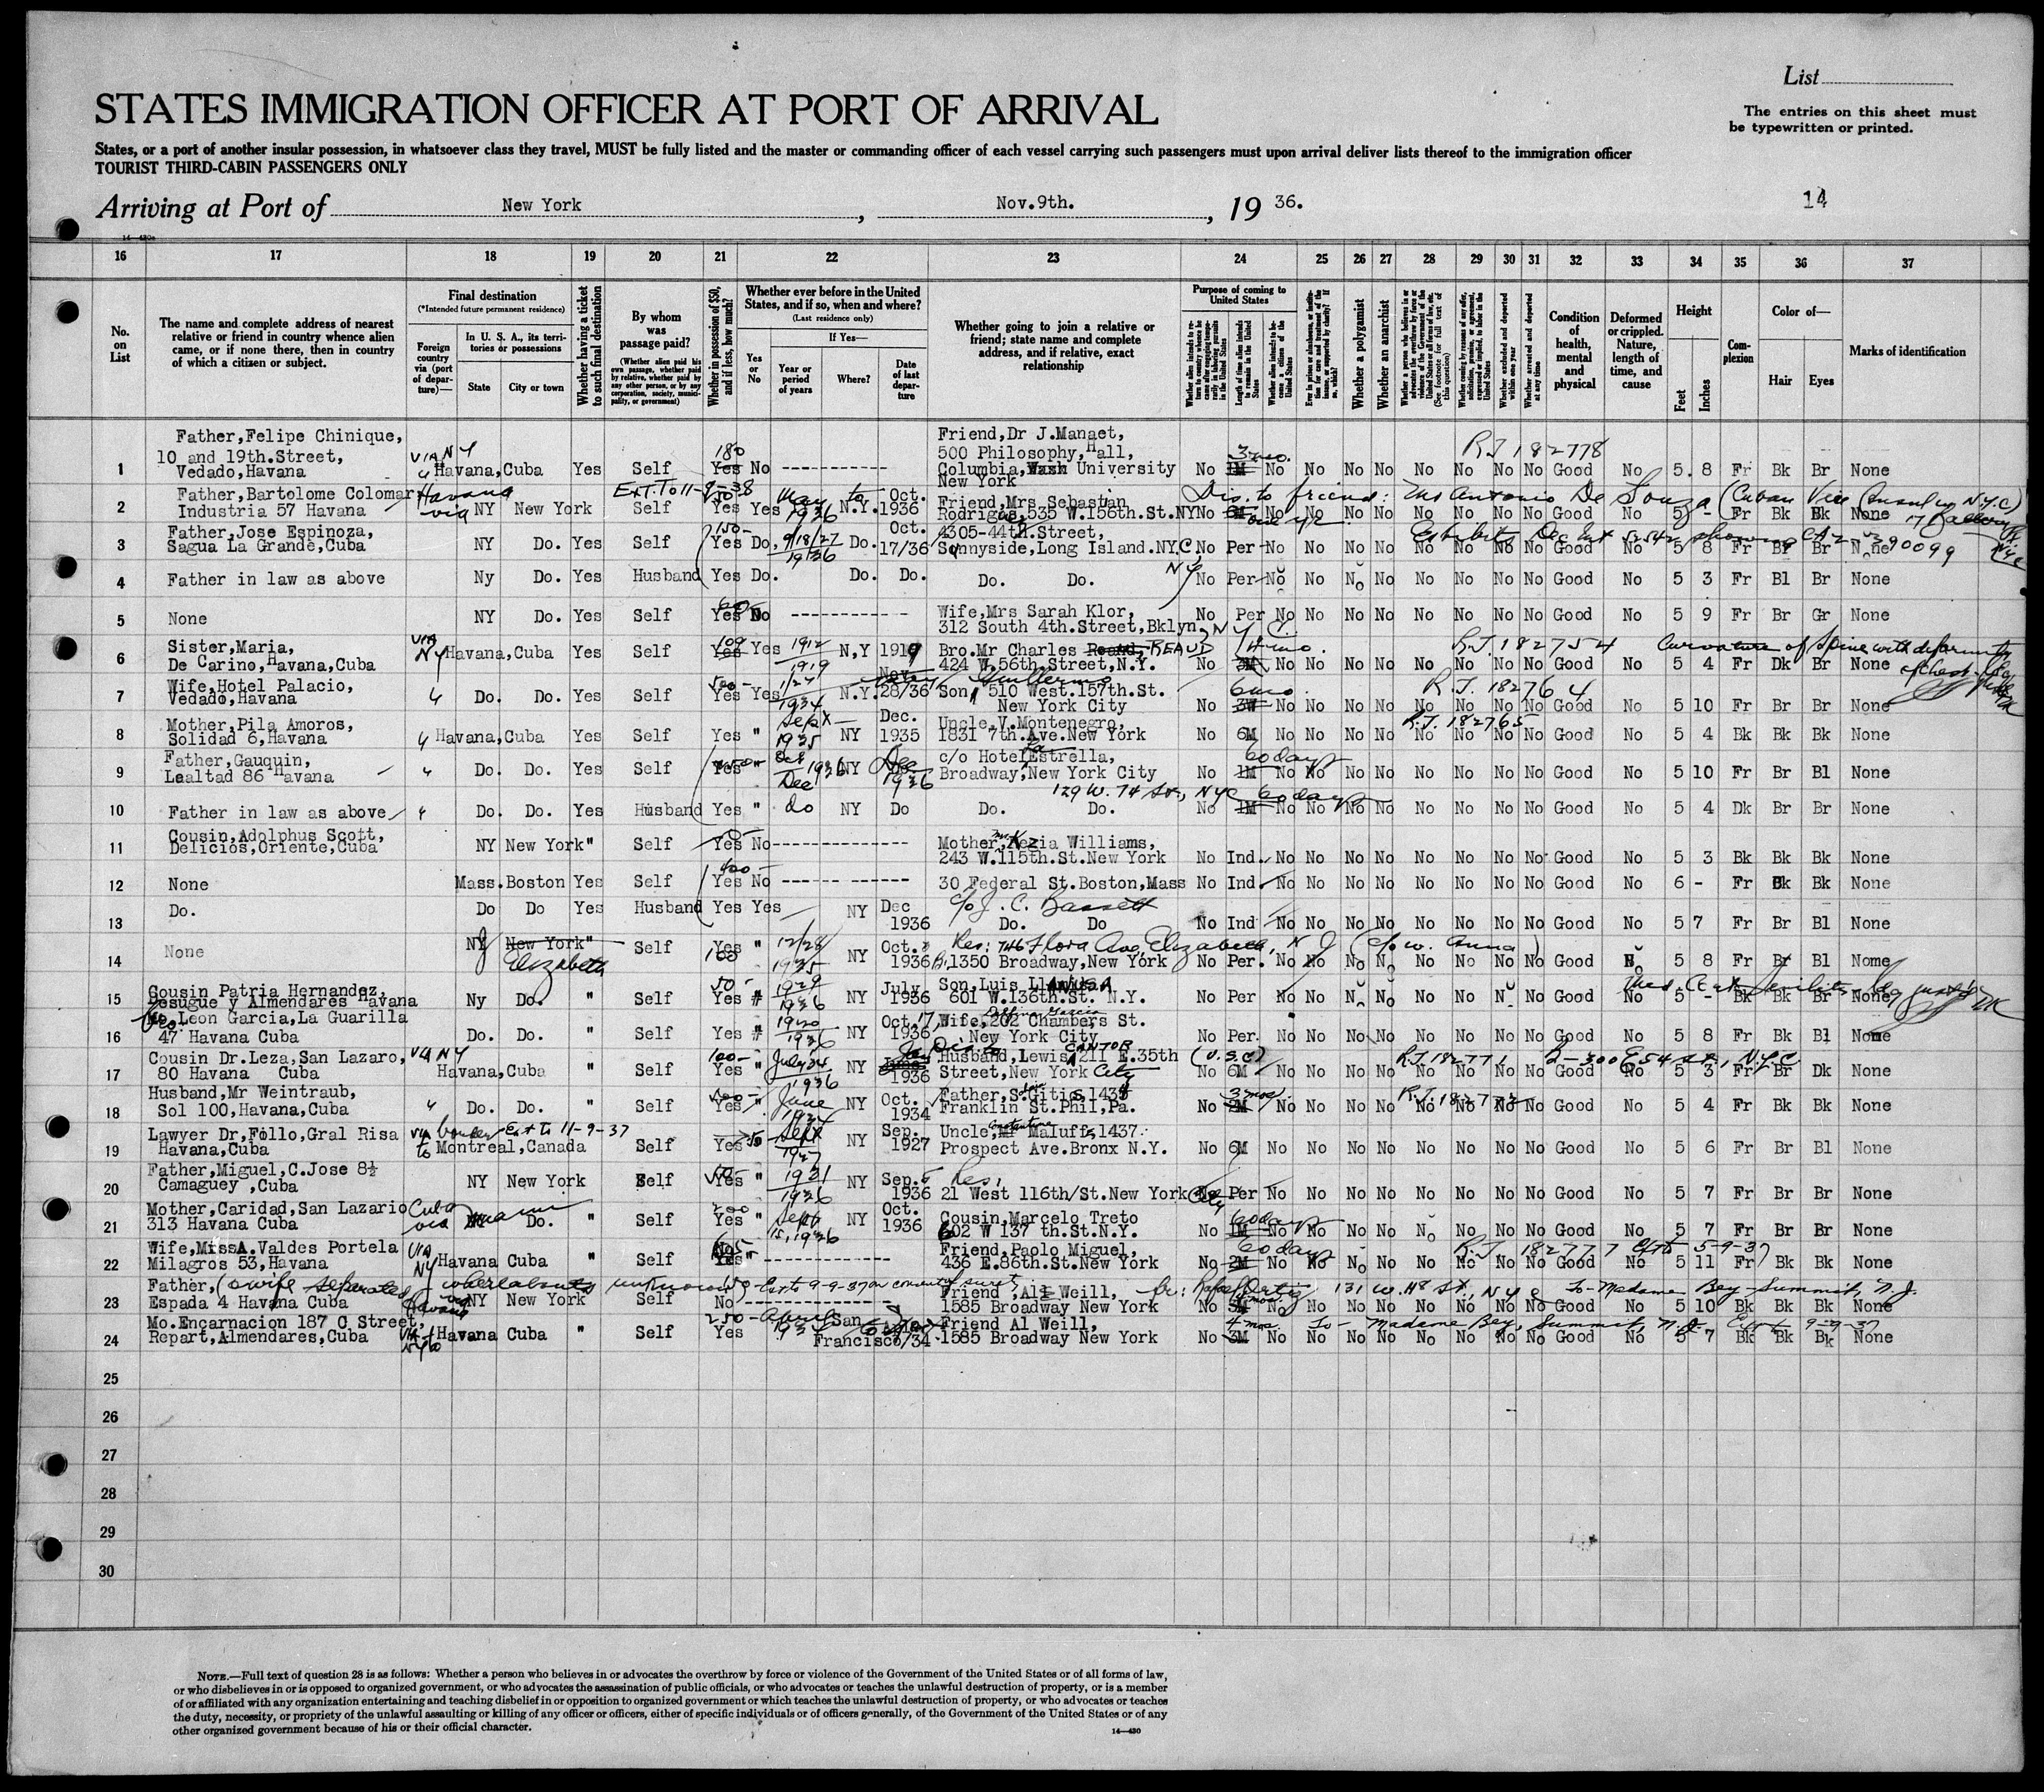 List
STATES IMMIGRATION OFFICER AT PORT OF ARRIVAL
The entries on this sheet must
be typewritten or printed.
States, or a port of another insular possession, in whatsoever class they travel, MUST be fully listed and the master or commanding officer of each vessel carrying such passengers must upon arrival deliver lists thereof to the immigration officer
TOURIST THIRD-CABIN PASSENGERS ONLY
Arriving at Port of New York, Nov.9th., 19 36. 14
16 17 18 19 20 21 22 23 24 25 26 27 28 29 30 31 32 33 34 35 36 37
No. on List
The name and complete address of nearest relative or friend in country whence alien came, or if none there, then in country of which a citizen or subject.
Final destination
(*Intended future permanent residence)
Foreign country via (port of departure)—
In U. S. A., its territories or possessions
State
City or town
Whether having a ticket to such final destination
By whom was passage paid?
(Whether alien paid his own passage, whether paid by relative, whether paid by any other person, or by any corporation, society, municipality, or government)
Whether in possession of $50, and if less, how much?
Whether ever before in the United States, and if so, when and where?
(Last residence only)
Yes or No
If Yes—
Year or period of years
Where?
Date of last departure
Whether going to join a relative or friend; state name and complete address, and if relative, exact relationship
Purpose of coming to United States
Length of time alien intends to remain in the United States
Whether a polygamist
Whether an anarchist
Condition of health, mental and physical
Deformed or crippled. Nature, length of time, and cause
Height
Feet
Inches
Complexion
Color of—
Hair
Eyes
Marks of identification
1 Father,Felipe Chinique, 10 and 19th.Street, Vedado,Havana VIA NY Havana,Cuba Yes Self 180 Yes No Friend,Dr J.Manaet, 500 Philosophy,Hall, Columbia, University New York No 3 mo. 1M No No No No No No No No Good No 5.8 Fr Bk Br None R.J 182778
2 Father,Bartolome Colomar Industria 57 Havana Havana via NY New York Yes Self Ext. To 11-9-38 Yes Yes May 1936 to N.Y. Oct. 1936 Friend,Mrs Sebastan 535 W.156th.St.NY No 6M No No No No No No No No Good No 5 - Fr Bk Bk None
3 Father,Jose Espinoza, Sagua La Grande,Cuba NY Do. Yes Self 150- Yes Do. 9/18/27 1936 Do. Oct. 17/36 4305-44th.Street, Sunnyside,Long Island.NY.C No Per No No No No No No No No Good No 5 8 Fr Br Br None
4 Father in law as above Ny Do. Yes Husband Yes Do. Do. Do. Do. Do. No Per No No No No No No No No Good No 5 3 Fr Bl Br None
5 None NY Do. Yes Self 60 Yes No Wife,Mrs Sarah Klor, 312 South 4th.Street,Bklyn N.Y. No Per No No No No No No No No Good No 5 9 Fr Br Gr None
6 Sister,Maria, De Carino,Havana,Cuba VIA NY Havana,Cuba Yes Self 100 Yes Yes 1912 1919 N,Y 1919 Bro.Mr Charles READ 424 W.56th.Street,N.Y. No No No No No No No No No Good No 5 4 Fr Dk Br None R.J. 182754 Curvature of Spine with deformity of chest
7 Wife,Hotel Palacio, Vedado,Havana Do. Do. Yes Self 500- Yes Yes 1/27 1934 N.Y. 28/36 Son, Guillermo 510 West.157th.St. New York City No 6 mo. 3W No No No No No No No No Good No 5 10 Fr Br Br None R.J. 182764
8 Mother,Pila Amoros, Solidad 6,Havana Havana,Cuba Yes Self Yes " Sept 1935 NY Dec. 1935 Uncle,V.Montenegro, 1831 7th.Ave.New York No 6M No No No No No No No No Good No 5 4 Bk Bk Bk None R.J. 182765
9 Father,Gauquin, Lealtad 86 Havana Do. Do. Yes Self Yes " Dec 1936 NY Dec 1936 c/o Hotel La Estrella, Broadway,New York City No 60 days 1M No No No No No No No No Good No 5 10 Fr Br Bl None
129 W. 74 St., NYC 60 days
10 Father in law as above Do. Do. Yes Husband Yes " do NY Do Do. Do. No 1M No No No No No No No No Good No 5 4 Dk Br Br None
11 Cousin,Adolphus Scott, Delicios,Oriente,Cuba NY New York " Self Yes No Mother, Kezia Williams, 243 W.115th.St.New York No Ind. No No No No No No No No Good No 5 3 Bk Bk Bk None
12 None Mass.Boston Yes Self 400- Yes No 30 Federal St.Boston,Mass No Ind. No No No No No No No No Good No 6 - Fr Bk Bk None
13 Do. Do Do Yes Husband Yes Yes NY Dec 1936 c/o J. C. Bassett Do. Do No Ind No No No No No No No No Good No 5 7 Fr Br Bl None
14 None NJ New York Elizabeth " Self Yes 100 " 12/28 1935 NY Oct. 1936 Res: 746 Flora Ave, Elizabeth, N J (c/o w. Anna) 1350 Broadway,New York No Per. No No No No No No No No Good No 5 8 Fr Br Bl None
15 Cousin Patria Hernandez, Almendares Havana Ny Do. " Self 50- Yes " 1929 1936 NY July 1936 Son,Luis 601 W.136th.St. N.Y. No Per No No No No No No No No Good No 5 - Bk Bk Br None
16 Leon Garcia,La Guarilla 47 Havana Cuba Do. Do. " Self Yes " 1920 1936 NY Oct.17, 1936 Wife,202 Chambers St. New York City No Per. No No No No No No No No Good No 5 8 Fr Bk Bl None
17 Cousin Dr.Leza,San Lazaro, 80 Havana Cuba VIA NY Havana,Cuba " Self 100- Yes " July 34 1936 NY 1936 Husband,Lewis CANTOR 211 E.35th Street,New York City (U.S.C) No 6M No No No No No No No No Good No 5 3 Fr Br Dk None R.J. 182771 B-300 E 54 St., N.Y.C
18 Husband,Mr Weintraub, Sol 100,Havana,Cuba Do. Do. " Self Yes " June 1934 NY Oct. 1934 Father,S.Gitis,1435 Franklin St.Phil,Pa. No 3 mos. 2M No No No No No No No No Good No 5 4 Fr Bk Bk None R.J. 182772
19 Lawyer Dr,Follo,Gral Risa Havana,Cuba via border Ext to 11-9-37 to Montreal,Canada Self Yes 50 Sept 1927 NY Sep. 1927 Uncle, Constantine Maluff,1437. Prospect Ave.Bronx N.Y. No 6M No No No No No No No No Good No 5 6 Fr Br Bl None
20 Father,Miguel,C.Jose 8½ Camaguey ,Cuba NY New York Self Yes " 1931 1936 NY Sep. 1936 Res. 21 West 116th/St.New York City No Per No No No No No No No No Good No 5 7 Fr Br Br None
21 Mother,Caridad,San Lazario 313 Havana Cuba Cuba via Miami Do. " Self 200 Yes " Sept 15, 1936 NY Oct. 1936 Cousin,Marcelo Treto 602 W 137 th.St.N.Y. No 60 days 1M No No No No No No No No Good No 5 7 Fr Br Br None
22 Wife,MissA.Valdes Portela Milagros 53,Havana VIA NY Havana Cuba " Self Yes Friend,Paolo Miguel, 436 E.86th.St.New York No 60 days 2M No No No No No No No No Good No 5 11 Fr Bk Bk None R.J. 182777 5-9-37
23 Father, (wife separated, whereabouts unknown) Ext to 9-9-37 Espada 4 Havana Cuba via Havana NY New York Self No Friend,Al Weill, 1585 Broadway New York No No No No No No No No No Good No 5 10 Bk Bk Bk None Rafael Ortiz 131 W. 118 St., NYC To- Madame Bey-Summit, N.J.
24 Mo.Encarnacion 187 C Street, Repart,Almendares,Cuba Havana Cuba " Self 250- Yes April San Francisco/34 Friend Al Weill, 1585 Broadway New York No 4 mos. 3M No No No No No No No No Good No 5 7 Bk Bk Bk None To - Madame Bey, Summit, N.J. 9-9-37
25
26
27
28
29
30
NOTE.—Full text of question 28 is as follows: Whether a person who believes in or advocates the overthrow by force or violence of the Government of the United States or of all forms of law,
or who disbelieves in or is opposed to organized government, or who advocates the assassination of public officials, or who advocates or teaches the unlawful destruction of property, or is a member
of or affiliated with any organization entertaining and teaching disbelief in or opposition to organized government or which teaches the unlawful destruction of property, or who advocates or teaches
the duty, necessity, or propriety of the unlawful assaulting or killing of any officer or officers, either of specific individuals or of officers generally, of the Government of the United States or of any
other organized government because of his or their official character.
14—430